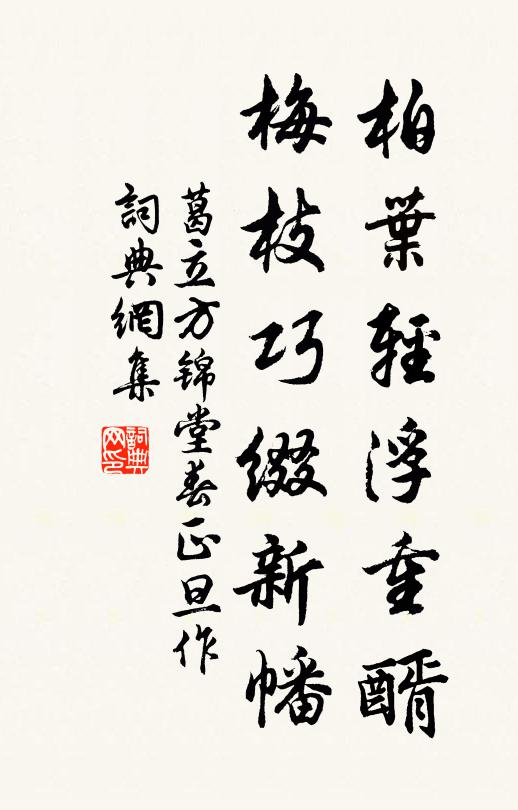 柏葉輕浮重醑
梅枝巧綴新幡
葛立方锦堂春正旦作
詞典網集
詞典网印